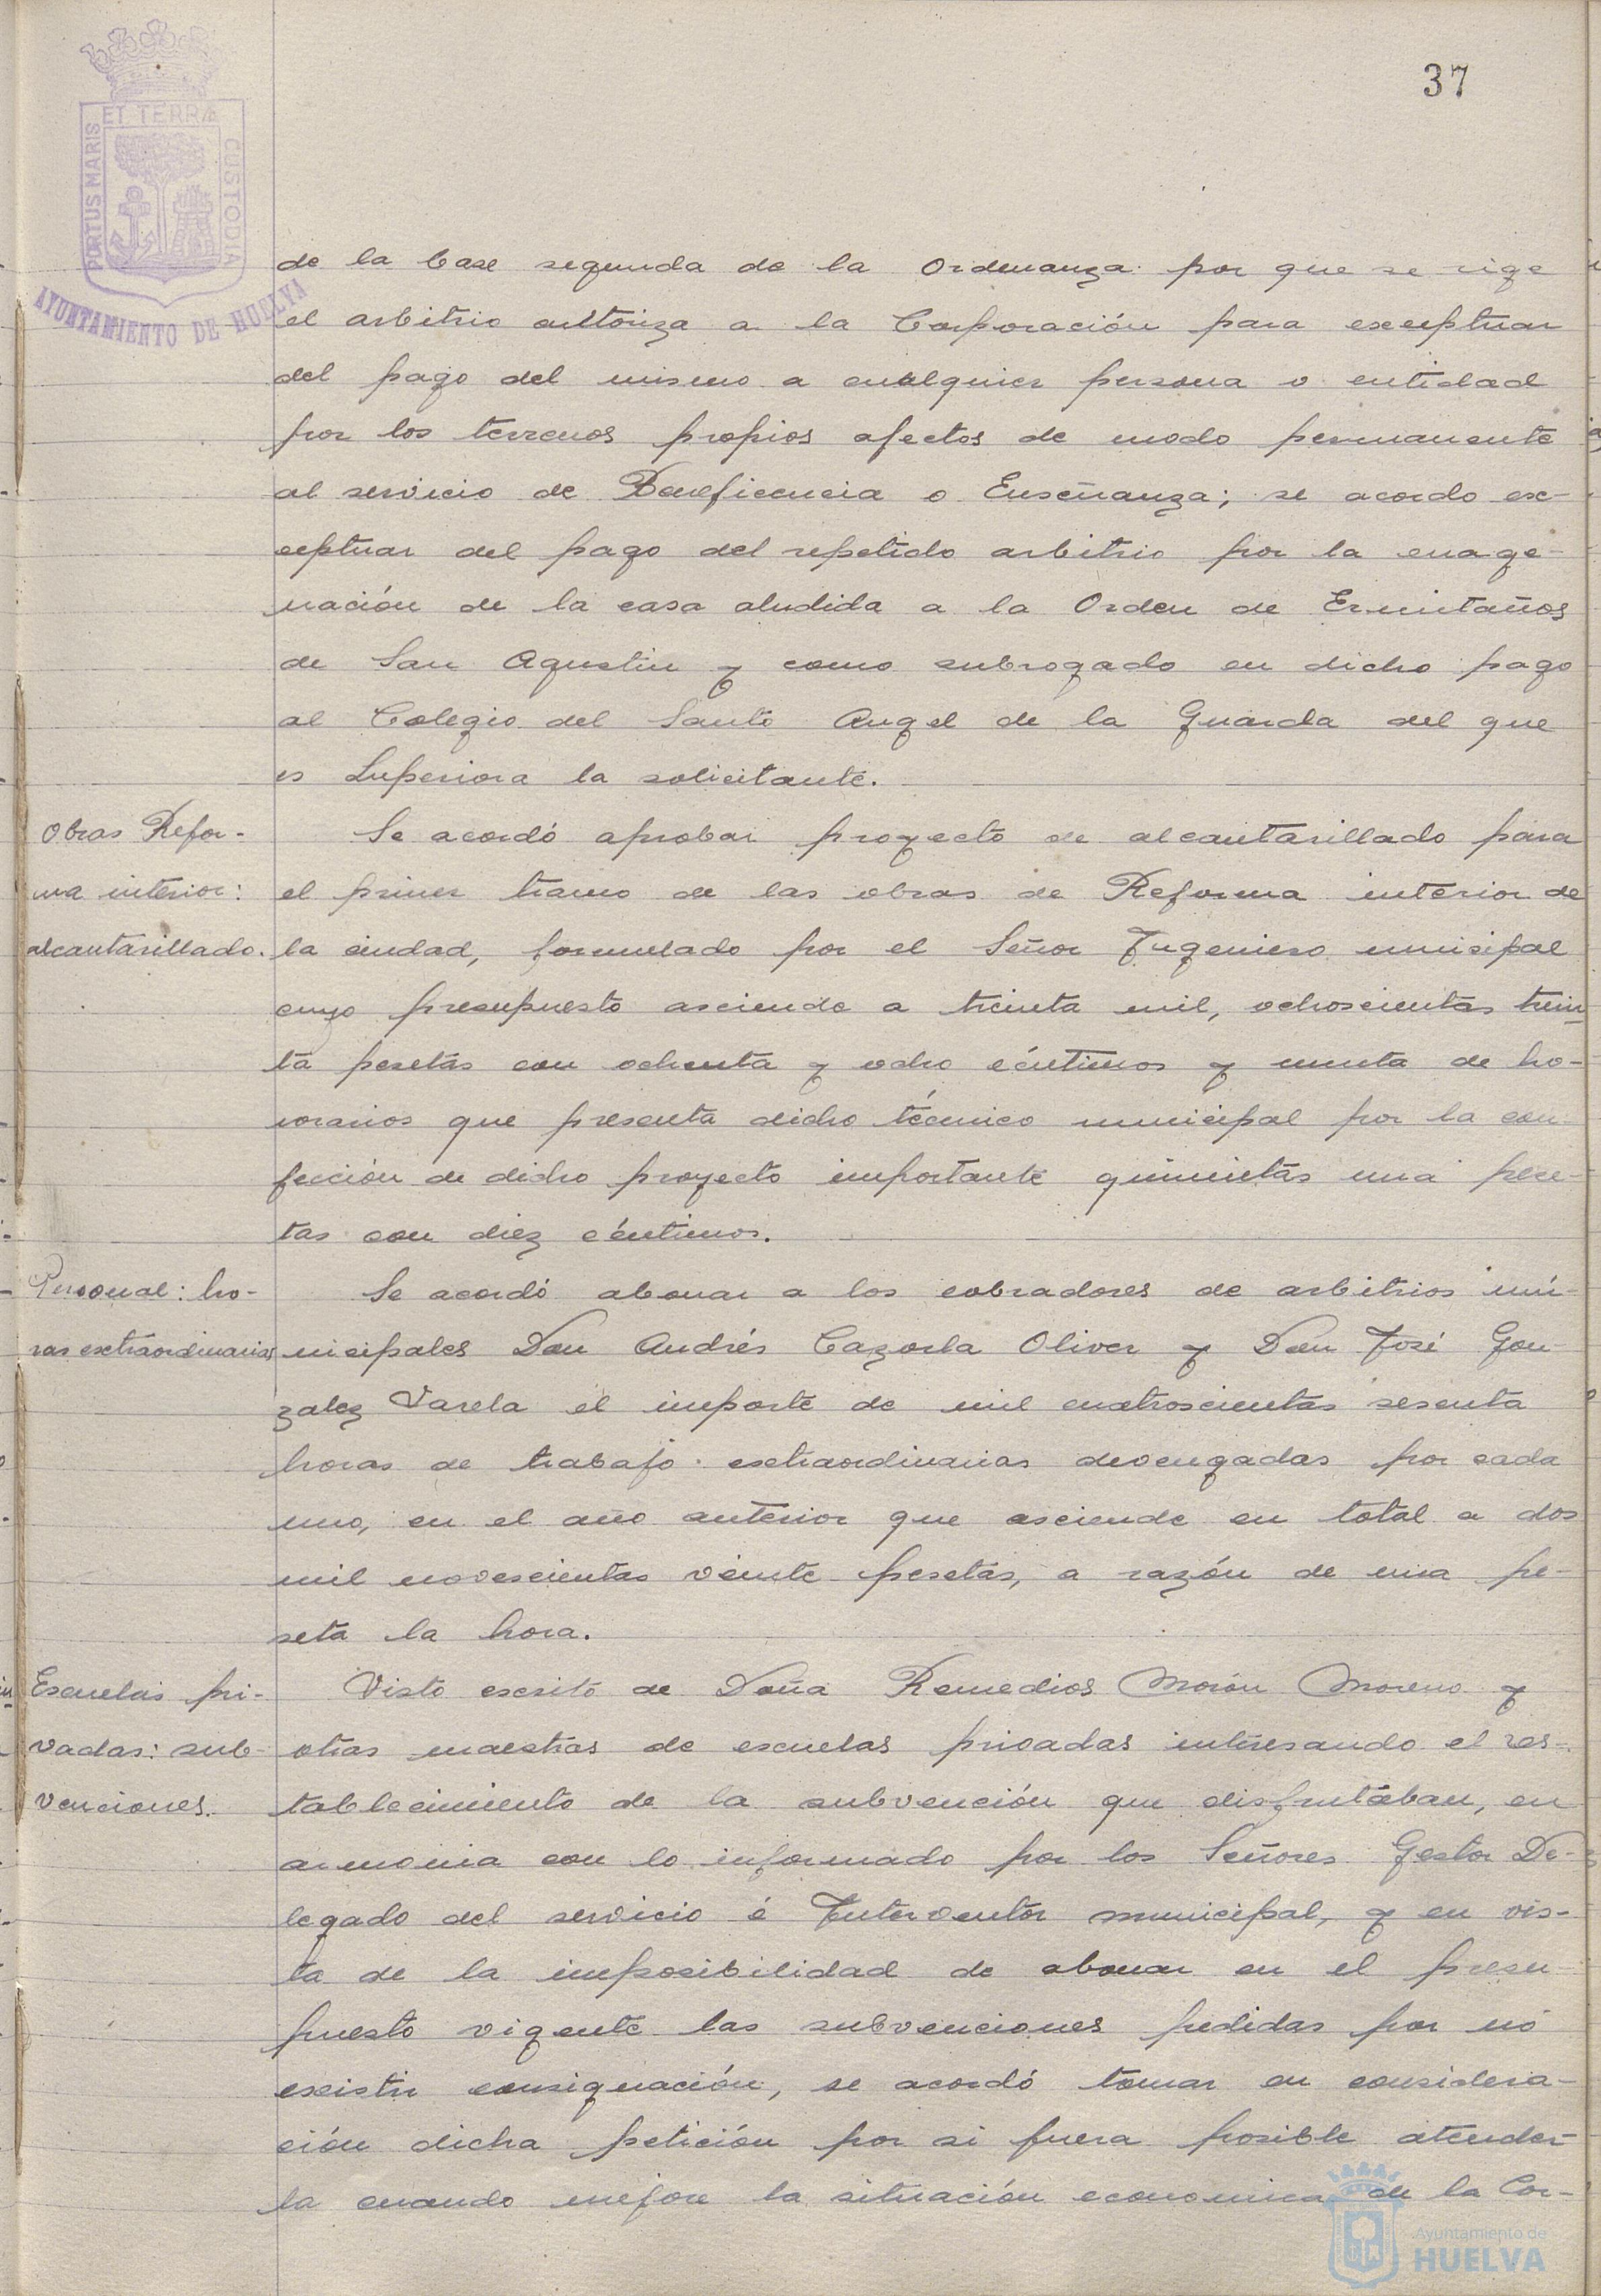 37
PORTUS MARIS ET TERRÆ CUSTODIA
AYUNTAMIENTO DE HUELVA
de la base segunda de la Ordenanza por que se rige
el arbitrio autoriza a la Corporación para exceptuar
del pago del mismo a cualquier persona o entidad
por los terrenos propios afectos de modo permanente
al servicio de Beneficencia o Enseñanza; se acordo ex-
ceptuar del pago del repetido arbitrio por la enage-
nación de la casa aludida a la Orden de Ermitaños
de San Agustin y como subrogado en dicho pago
al Colegio del Santo Angel de la Guarda del que
es Superiora la solicitante.
Obras Refor-
ma interior:
alcantarillado.
Se acordó aprobar proyecto de alcantarillado para
el primer tramo de las obras de Reforma interior de
la ciudad, formulado por el Señor Ingeniero municipal
cuyo presupuesto asciende a treinta mil, ochoscientas trein-
ta pesetas con ochenta y ocho céntimos y minuta de ho-
norarios que presenta dicho técnico municipal por la con-
fección de dicho proyecto importante quinientas una pese-
tas con diez céntimos.
Personal: ho-
ras extraordinarias
Se acordó abonar a los cobradores de arbitrios mu-
nicipales Don Andrés Cazorla Oliver y Don José Gon-
zalez Varela el importe de mil cuatroscientas sesenta
horas de trabajo extraordinarias devengadas por cada
uno, en el año anterior que asciende en total a dos
mil novescientas veinte pesetas, a razón de una pe-
seta la hora.
Escuelas pri-
vadas: sub-
venciones.
Visto escrito de Doña Remedios Morón Moreno y
otras maestras de escuelas privadas interesando el res-
tablecimiento de la subvención que disfrutaban, en
armonia con lo informado por los Señores Gestor De-
legado del servicio é Interventor municipal, y en vis-
ta de la imposibilidad de abonar en el presu-
puesto vigente las subvenciones pedidas por no
existir consignación, se acordó tomar en considera-
ción dicha petición por si fuera posible atender-
la cuando mejore la situación economica de la Cor-
Ayuntamiento de
HUELVA